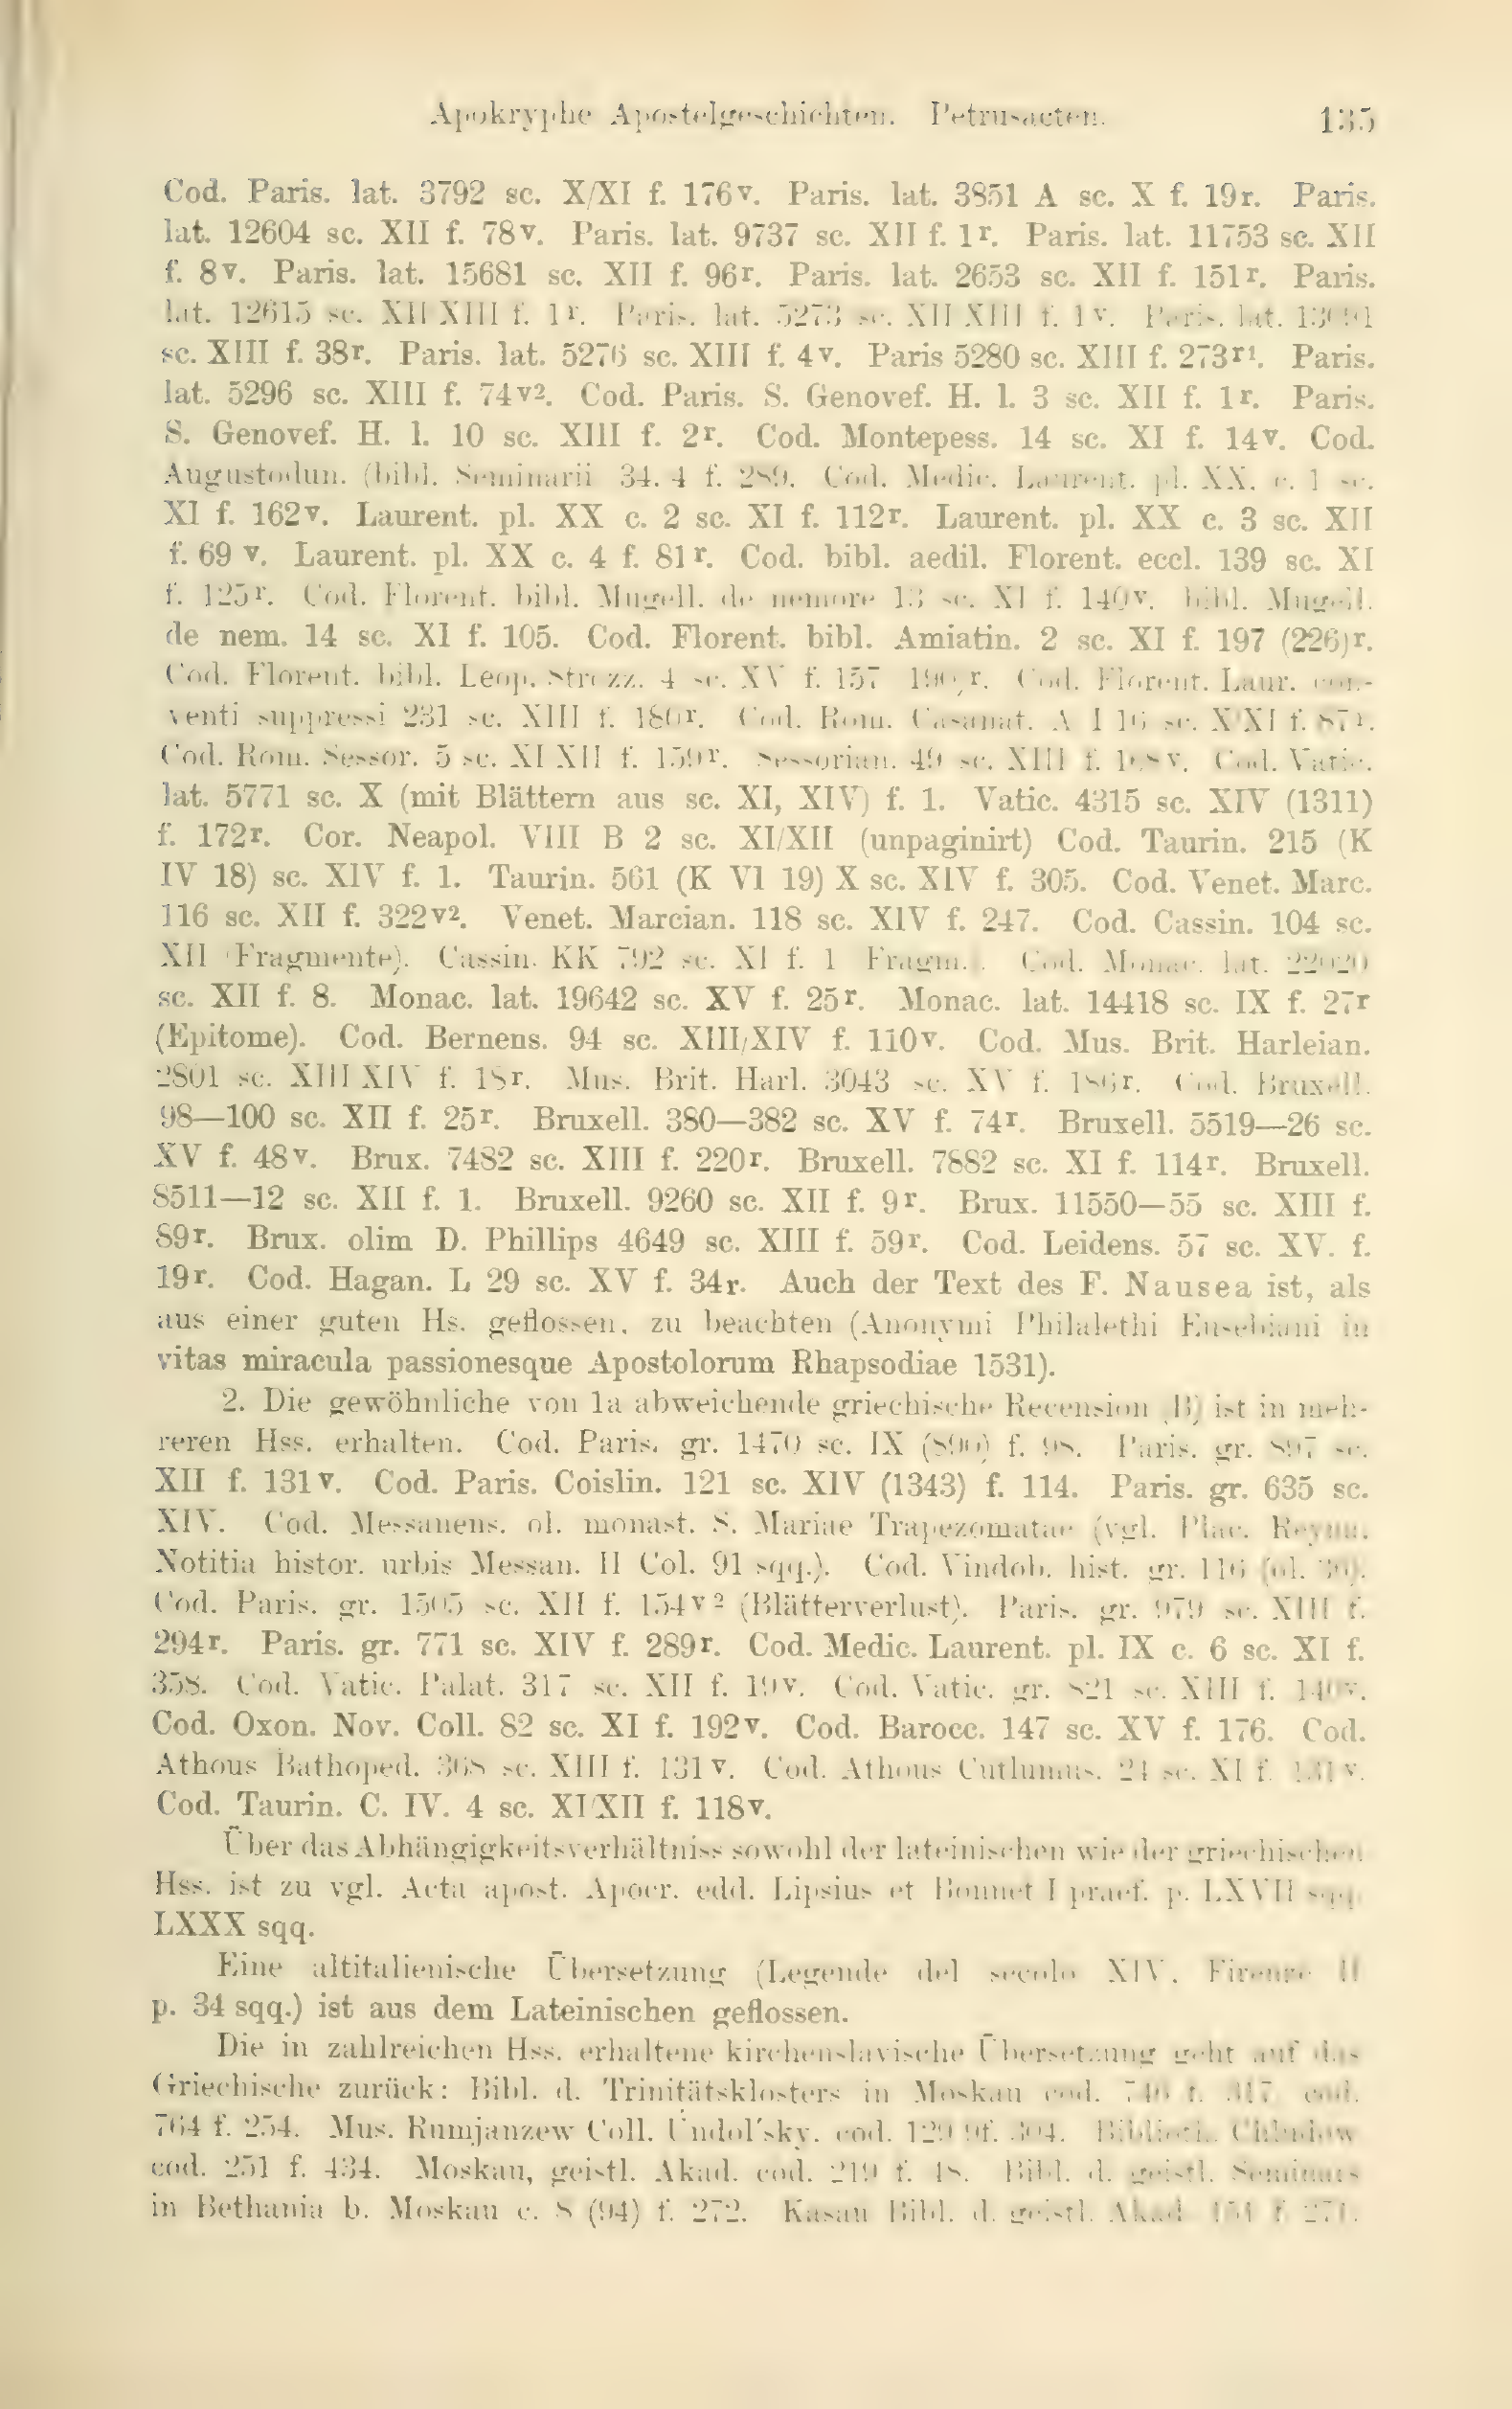 Apokryphe Apostelgeschichten. Petrusacten. 135
Cod. Paris. lat. 3792 sc. X/XI f. 176v. Paris. lat. 3851 A sc. X f. 19r. Paris.
lat. 12604 sc. XII f. 78v. Paris. lat. 9737 sc. XII f. 1r. Paris. lat. 11753 sc. XII
f. 8v. Paris. lat. 15681 sc. XII f. 96r. Paris. lat. 2653 sc. XII f. 151r. Paris.
lat. 12615 sc. XII XIII f. 1r. Paris. lat. 5273 sc. XII XIII f. 1v. Paris. lat.
sc. XIII f. 38r. Paris. lat. 5276 sc. XIII f. 4v. Paris 5280 sc. XIII f. 273r1. Paris.
lat. 5296 sc. XIII f. 74v2. Cod. Paris. S. Genovef. H. l. 3 sc. XII f. 1r. Paris.
S. Genovef. H. l. 10 sc. XIII f. 2r. Cod. Montepess. 14 sc. XI f. 14v. Cod.
Augustodun. (bibl. Seminarii 34. 4 f. 289. Cod. Medic. Laurent. pl. XX. c. 1 sc.
XI f. 162v. Laurent. pl. XX c. 2 sc. XI f. 112r. Laurent. pl. XX c. 3 sc. XII
f. 69 v. Laurent. pl. XX c. 4 f. 81r. Cod. bibl. aedil. Florent. eccl. 139 sc. XI
f. 125r. Cod. Florent. bibl. Mugell. de nemore 13 sc. XI f. 140v. bibl. Mugell.
de nem. 14 sc. XI f. 105. Cod. Florent. bibl. Amiatin. 2 sc. XI f. 197 (226)r.
Cod. Florent. bibl. Leop. Strozz. 4 sc. XV f. 157 Cod. Florent. Laur. con-
venti suppressi 231 sc. XIII f. 180r. Cod. Rom. Casanat. A I 16 sc. X/XI f.
Cod. Rom. Sessor. 5 sc. XI XII f. 159r. Sessorian. 49 sc. XIII f. Cod. Vatic.
lat. 5771 sc. X (mit Blättern aus sc. XI, XIV) f. 1. Vatic. 4315 sc. XIV (1311)
f. 172r. Cor. Neapol. VIII B 2 sc. XI/XII (unpaginirt) Cod. Taurin. 215 (K
IV 18) sc. XIV f. 1. Taurin. 561 (K VI 19) X sc. XIV f. 305. Cod. Venet. Marc.
116 sc. XII f. 322v2. Venet. Marcian. 118 sc. XIV f. 247. Cod. Cassin. 104 sc.
XII (Fragmente). Cassin. KK 792 sc. XI f. 1 Fragm. . Cod. Monac. lat. 22020
sc. XII f. 8. Monac. lat. 19642 sc. XV f. 25r. Monac. lat. 14418 sc. IX f. 27r
(Epitome). Cod. Bernens. 94 sc. XIII/XIV f. 110v. Cod. Mus. Brit. Harleian.
2801 sc. XIII XIV f. 18r. Mus. Brit. Harl. 3043 sc. XV f. 186r. Cod. Bruxell.
98—100 sc. XII f. 25r. Bruxell. 380—382 sc. XV f. 74r. Bruxell. 5519—26 sc.
XV f. 48v. Brux. 7482 sc. XIII f. 220r. Bruxell. 7882 sc. XI f. 114r. Bruxell.
8511—12 sc. XII f. 1. Bruxell. 9260 sc. XII f. 9r. Brux. 11550—55 sc. XIII f.
89r. Brux. olim D. Phillips 4649 sc. XIII f. 59r. Cod. Leidens. 57 sc. XV. f.
19r. Cod. Hagan. L 29 sc. XV f. 34r. Auch der Text des F. Nausea ist, als
aus einer guten Hs. geflossen, zu beachten (Anonymi Philalethi Eusebiani in
vitas miracula passionesque Apostolorum Rhapsodiae 1531).
2. Die gewöhnliche von 1a abweichende griechische Recension (B) ist in meh-
reren Hss. erhalten. Cod. Paris. gr. 1470 sc. IX (890) f. 98. Paris. gr. 897 sc.
XII f. 131v. Cod. Paris. Coislin. 121 sc. XIV (1343) f. 114. Paris. gr. 635 sc.
XIV. Cod. Messanens. ol. monast. S. Mariae Trapezomatae (vgl. Plac. Reyna.
Notitia histor. urbis Messan. II Col. 91 sqq.). Cod. Vindob. hist. gr. 116 (ol. 36).
Cod. Paris. gr. 1505 sc. XII f. 154v2 (Blätterverlust). Paris. gr. 979 sc. XIII f.
294r. Paris. gr. 771 sc. XIV f. 289r. Cod. Medic. Laurent. pl. IX c. 6 sc. XI f.
358. Cod. Vatic. Palat. 317 sc. XII f. 19v. Cod. Vatic. gr. 821 sc. XIII f. 140v.
Cod. Oxon. Nov. Coll. 82 sc. XI f. 192v. Cod. Barocc. 147 sc. XV f. 176. Cod.
Athous Bathoped. 368 sc. XIII f. 131v. Cod. Athous Cutlumus. 24 sc. XI f.
Cod. Taurin. C. IV. 4 sc. XI/XII f. 118v.
Über das Abhängigkeitsverhältniss sowohl der lateinischen wie der griechischen
Hss. ist zu vgl. Acta apost. Apocr. edd. Lipsius et Bonnet I praef. p. LXVII sqq.
LXXX sqq.
Eine altitalienische Übersetzung (Legende del secolo XIV. Firenze II
p. 34 sqq.) ist aus dem Lateinischen geflossen.
Die in zahlreichen Hss. erhaltene kirchenslavische Übersetzung geht auf das
Griechische zurück: Bibl. d. Trinitätsklosters in Moskau cod. 746 f. 317. cod.
764 f. 254. Mus. Rumjanzew Coll. Undol'sky. cod. f. 304. Biblioth. Chludow
cod. 251 f. 434. Moskau, geistl. Akad. cod. 219 f. 48. Bibl. d. geistl. Seminars
in Bethania b. Moskau c. 8 (94) f. 272. Kasan Bibl. d. geistl. Akad. f. 271.